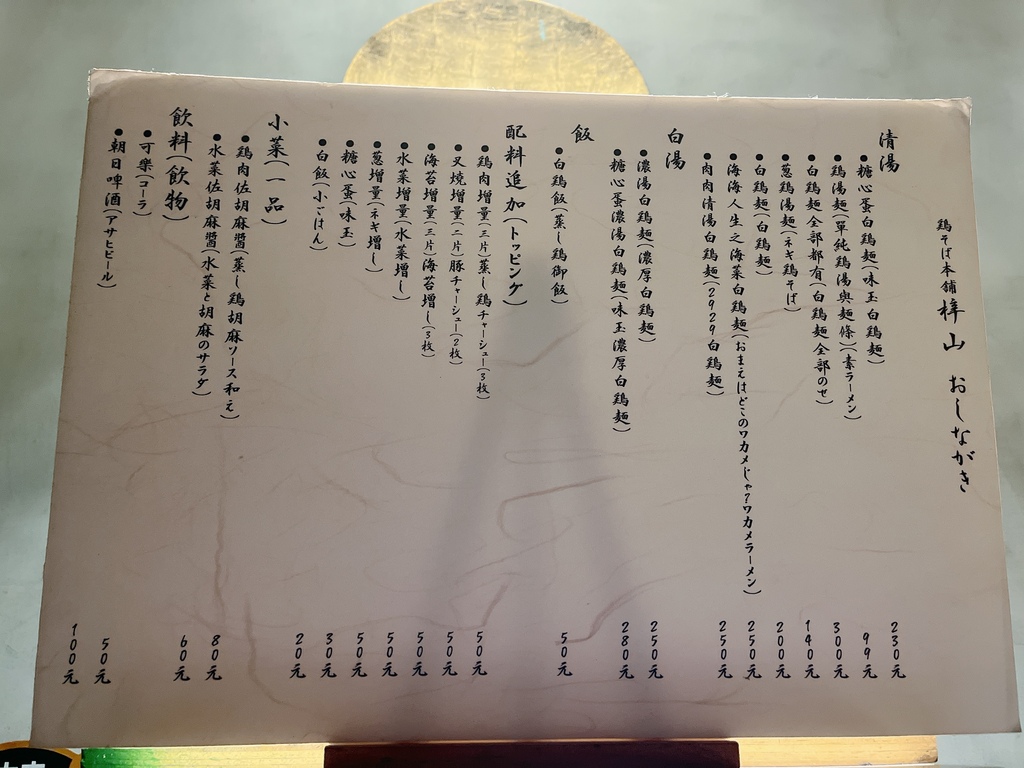 鶏そば本舗 梓山 おしながき
清湯
●糖心蛋白鶏麺(味玉白鶏麺) 230元
●鶏湯麺(單純鶏湯與麺條)(素ラーメン) 99元
●白鶏麺全部都有(白鶏麺全部のせ) 300元
●葱鶏湯麺(ネギ鶏そば) 140元
●白鶏麺(白鶏麺) 200元
●海海人生之海菜白鶏麺(おまえはどこのワカメじゃ?ワカメラーメン) 250元
●肉肉清湯白鶏麺(2929白鶏麺) 250元
白湯
●濃湯白鶏麺(濃厚白鶏麺) 250元
●糖心蛋濃湯白鶏麺(味玉濃厚白鶏麺) 280元
飯
●白鶏飯(蒸し鶏御飯) 50元
配料追加(トッピング)
●鶏肉増量(三片)蒸し鶏チャーシュー(3枚) 50元
●叉燒増量(二片)豚チャーシュー(2枚) 50元
●海苔増量(三片)海苔増し(3枚) 50元
●水菜増量(水菜増し) 50元
●葱増量(ネギ増し) 50元
●糖心蛋(味玉) 30元
●白飯(小ごはん) 20元
小菜(一品)
●鶏肉佐胡麻醬(蒸し鶏胡麻ソース和え) 80元
●水菜佐胡麻醬(水菜と胡麻のサラダ) 60元
飲料(飲物)
●可樂(コーラ) 50元
●朝日啤酒(アサヒビール) 100元